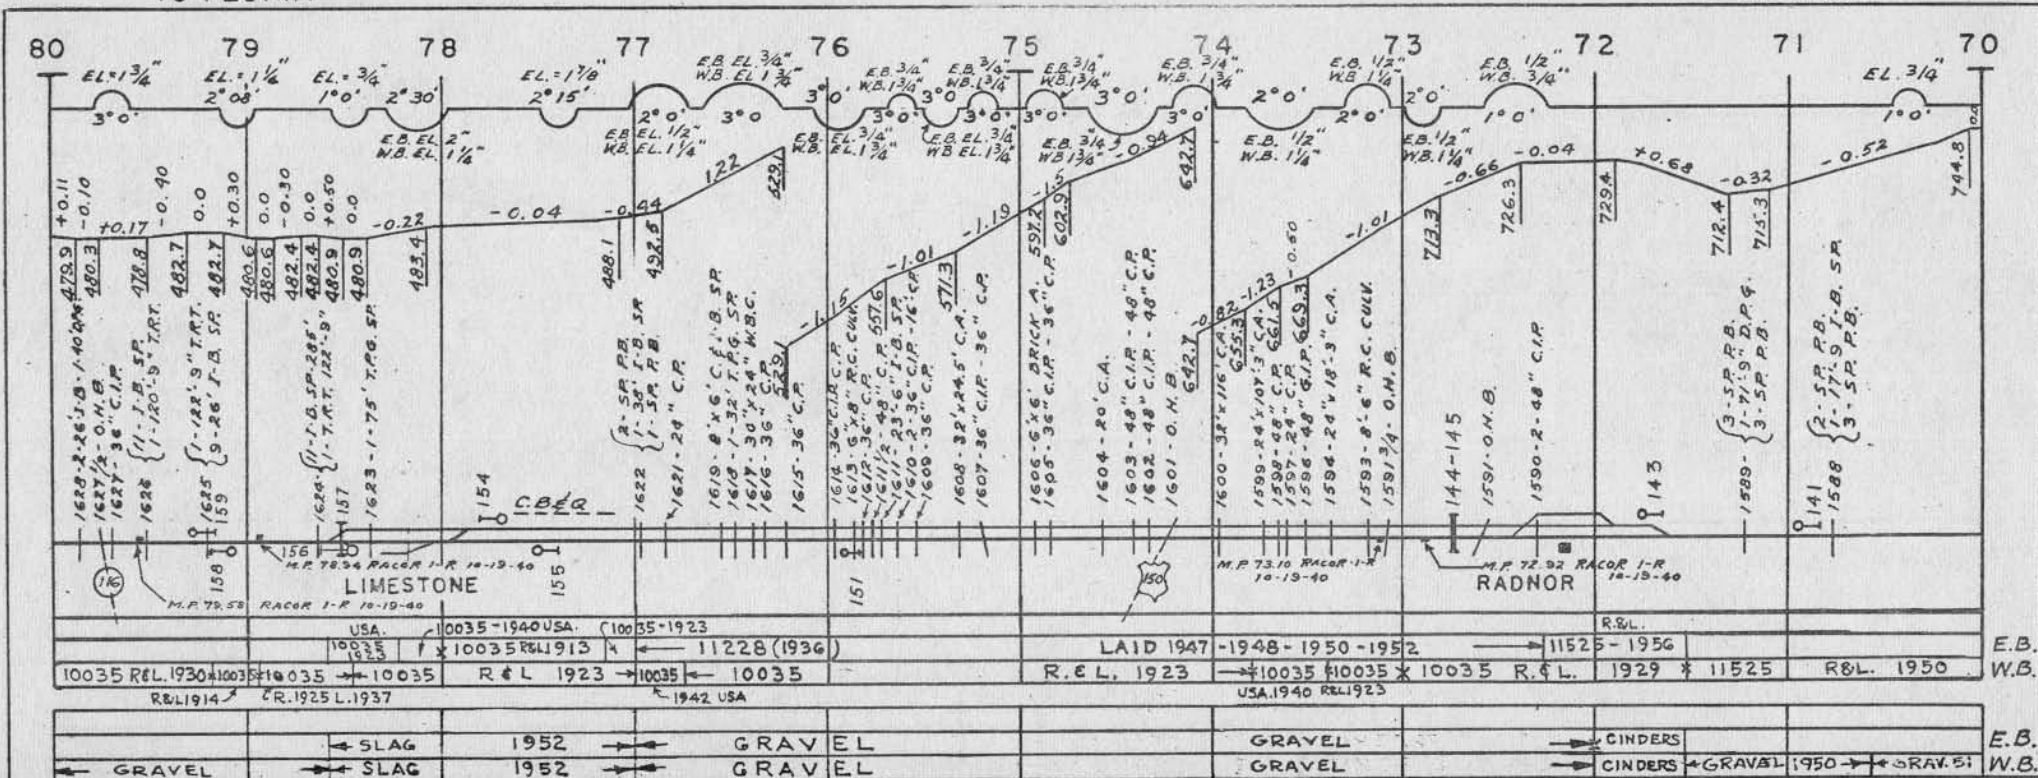 80 79 78 77 76 75 74 73 72 71 70
EL.=1 3/4" EL.=1 1/4" EL.=3/4" EL.=1 7/8" E.B. EL. 3/4" E.B. 3/4" E.B. 3/4" E.B. 3/4" E.B. 3/4" E.B. 1/2" E.B. 1/2 EL. 3/4"
W.B. EL 1 3/4" W.B. 1 3/4" W.B. 1 3/4" W.B. 1 3/4" W.B. 1 3/4" W.B 1 1/4" W.B. 3/4"
2°08' 1°0' 2°30' 2°15' 2°0' 3°0' 3°0' 3°0' 2°0' 2°0'
3°0' 3°0 3°0' 3°0' 2°0' 1°0' 1°0'
E.B. EL. 2" E.B. EL. 1/2" E.B. EL. 3/4" E.B. EL. 3/4" E.B. 3/4" E.B. 1/2" E.B. 1/2"
W.B. EL. 1 1/4" W.B. EL. 1 1/4" W.B. EL. 1 3/4" W.B EL. 1 3/4" W.B 1 3/4" W.B. 1 1/4" W.B. 1 1/4"
+0.11 -0.10 +0.17 -0.40 0.0 +0.30 0.0 -0.30 0.0 +0.50 0.0 -0.22 -0.04 -0.44 1.22 -1.15 -1.01 -1.19 -1.5 -0.94 -1.23 -0.50 -1.01 -0.66 -0.04 +0.68 -0.32 -0.52 0.0
479.9 480.3 478.8 482.7 482.7 480.6 480.6 482.4 482.4 480.9 480.9 483.4 488.1 492.5 529.1 529.1 557.6 571.3 597.2 602.9 642.7 642.7 655.3 661.5 669.3 713.3 726.3 729.4 712.4 715.3 744.8
1627 1/2 - O.H.B.
1627 - 36" C.I.P.
1626 {1-I-B. SP.
1-120'-9" T.R.T.
1625 {1-122'-9" T.R.T.
9-26' I-B. SP.
1624 {11-I-B. SP.-285'
1-T.R.T. 122'-9"
1623-1-75' T.P.G. SP.
1622 {2- SP. P.B.
1-38' I-B. SP.
1- SP. P.B.
1621-24" C.P.
1619-8'x6' C. & I-B. SP.
1618-1-32' T.P.G. SP.
1617-30"x24" W.B.C.
1616-36" C.P.
1615-36" C.P.
1613-6'x8' R.C. CULV.
1612-36" C.P.
1611 1/2-48" C.P.
1611-23'-6" I-B. SP.
1610-2-36" C.I.P.-16" C.P.
1609-36" C.P.
1608-32'x24.5' C.A.
1607-36" C.I.P.-36" C.P.
1606-6'x6' BRICK A.
1605-36" C.I.P.-36" C.P.
1604-20' C.A.
1603-48" C.I.P.-48" C.P.
1602-48" C.I.P.-48" C.P.
1601-O.H.B.
1600-32'x116' C.A.
1599-24'x107'-3" C.A.
1598-48" C.P.
1597-24" C.P.
1594-24'x18'-3" C.A.
1593-8'-6" R.C. CULV.
1591 3/4-O.H.B.
144-145
1591-O.H.B.
1590-2-48" C.I.P.
143
1589- {3-SP. P.B.
1-71'-9" D.P.G.
3-SP. P.B.
141
1588 {2-SP. P.B.
1-17'-9 I-B. SP.
3-SP. P.B.
159 158 157 156 155 154 151
C.B&Q
116 150
M.P. 78.94 RACOR I-R 10-19-40
M.P. 79.58 RACOR I-R 10-19-40
LIMESTONE
M.P. 73.10 RACOR I-R
10-19-40
M.P. 72.92 RACOR I-R
10-19-40
RADNOR
USA. 10035-1940 USA. 10035-1923 R.&L.
10035 1923 10035 R&L 1913 11228 (1936) LAID 1947-1948-1950-1952 11525-1956 E.B.
10035 R&L. 1930 10035 10035 10035 R & L 1923 10035 10035 R. & L. 1923 10035 10035 10035 R. & L. 1929 11525 R&L. 1950 W.B.
R&L 1914 R. 1925 L. 1937 1942 USA USA. 1940 R&L 1923
SLAG 1952 GRAVEL GRAVEL CINDERS E.B.
GRAVEL SLAG 1952 GRAVEL GRAVEL CINDERS GRAVEL 1950 GRAV. 51 W.B.